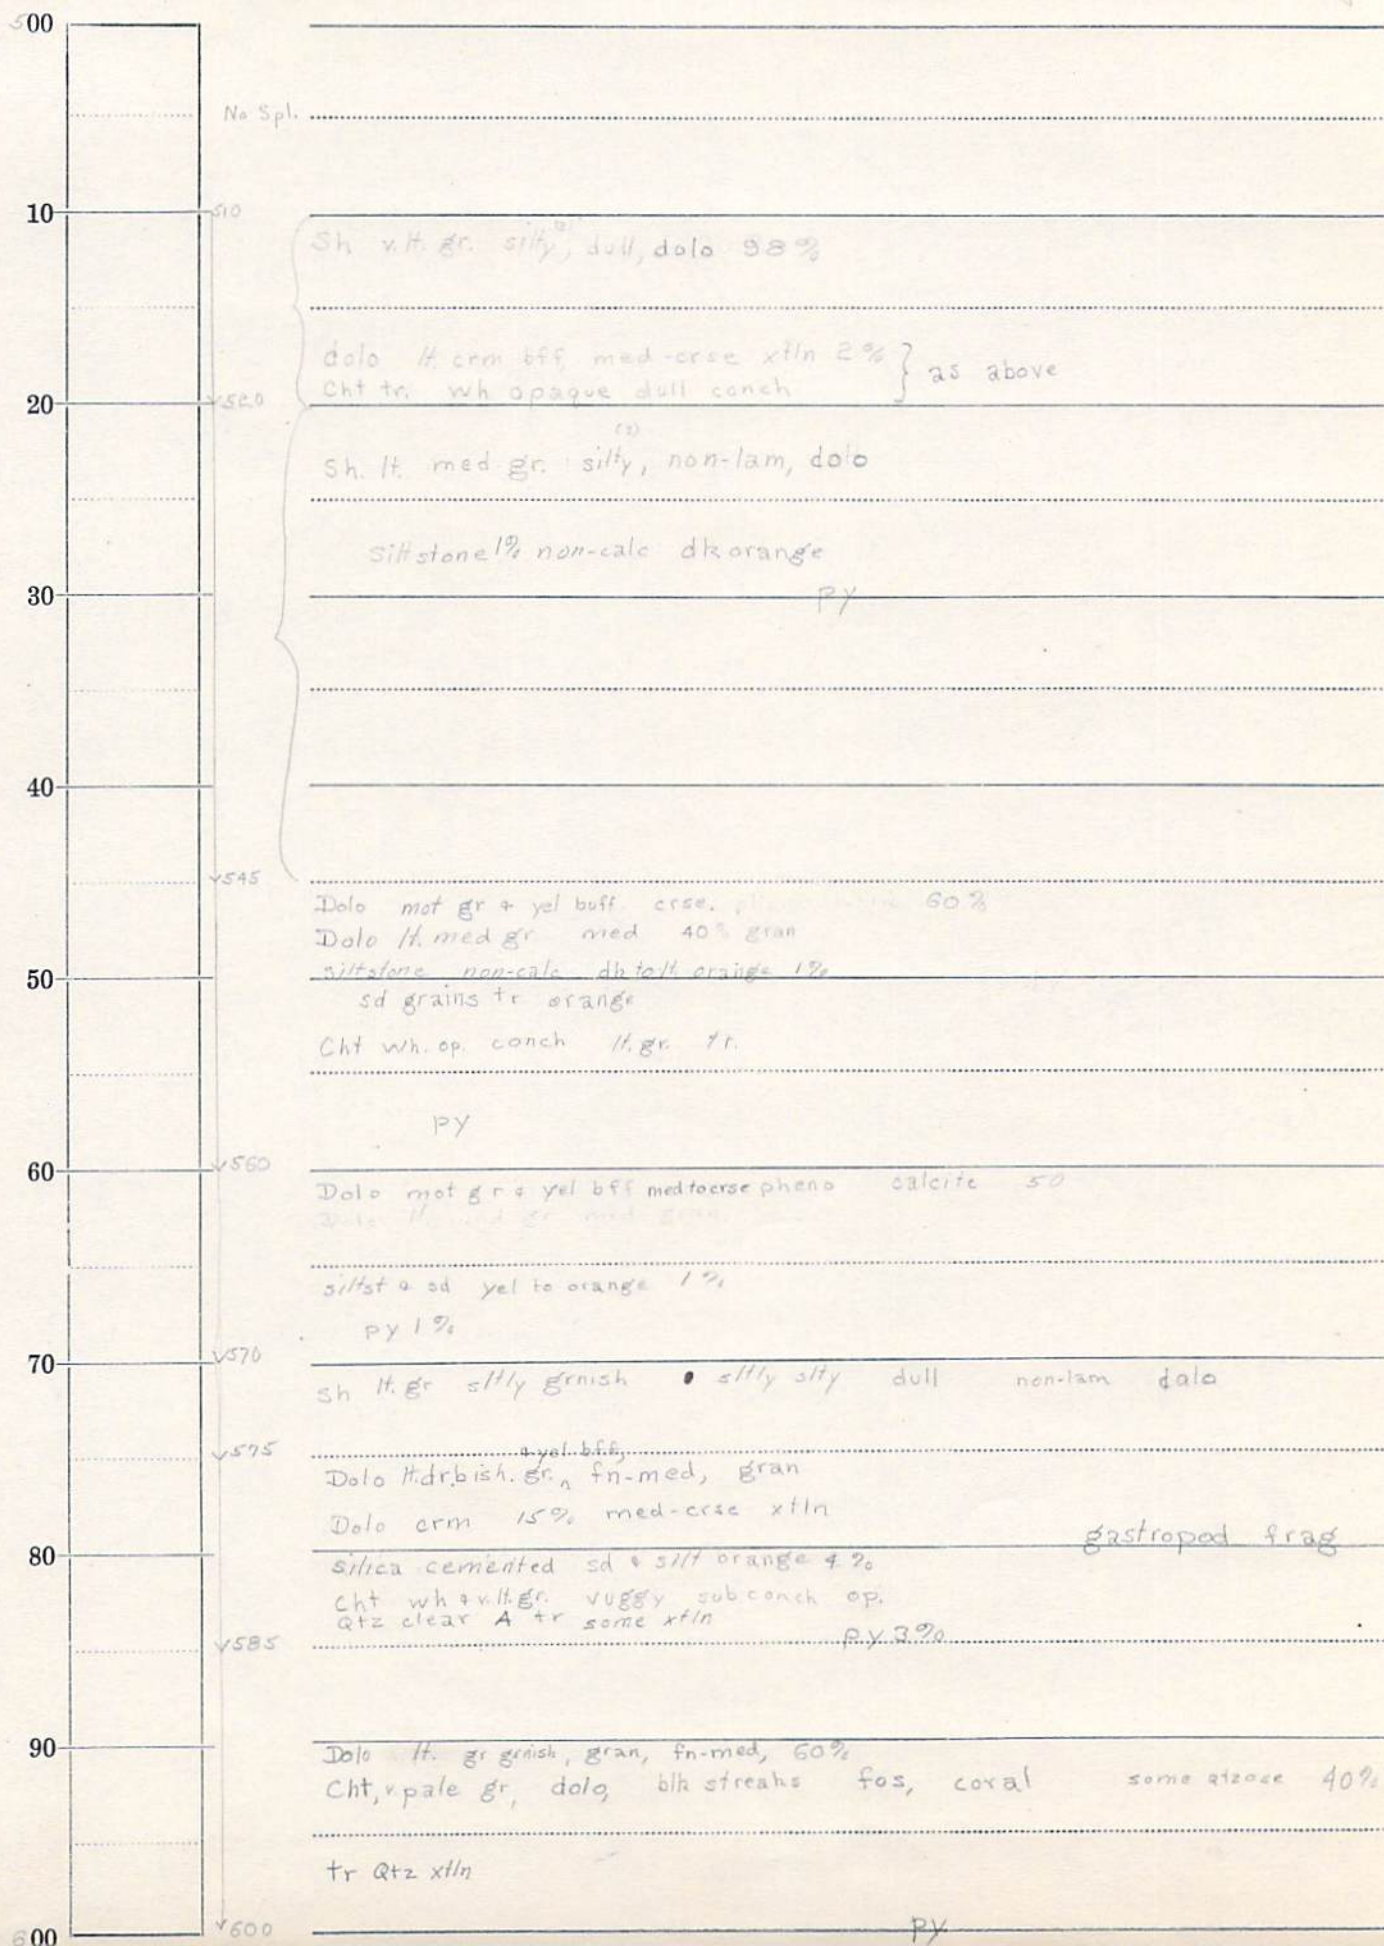 500
No Spl.
10 510
Sh v.lt. gr. silty, dull, dolo 98%
dolo lt. crm bff, med-crse xtln 2% } as above
Cht tr. wh opaque dull conch
20 520
(s)
Sh. lt. med gr. silty, non-lam, dolo
Siltstone 1% non-calc dk orange
30 py
40
545
Dolo mot gr & yel buff crse. 60%
Dolo lt. med gr med 40% gran
siltstone non-calc dk to lt. orange 1%
50
sd grains tr orange
Cht wh. op. conch lt. gr. tr.
py
60 560
Dolo mot gr & yel bff med to crse pheno calcite 50
Dolo lt. med gr med gran
siltst & sd yel to orange 1%
py 1%
70 570
Sh lt. gr sltly grnish sltly slty dull non-lam dolo
575
& yel bff,
Dolo lt. gr. ^ fn-med, gran
Dolo crm 15% med-crse xtln
gastropod frag
80
silica cemented sd & silt orange 4%
Cht wh & v.lt.gr. vuggy subconch op.
Qtz clear A tr some xtln
585 py 3%
90
Dolo lt. gr grnish, gran, fn-med, 60%
Cht, v. pale gr, dolo, blk streaks fos, coral some qtzose 40%
tr Qtz xtln
600 600 py